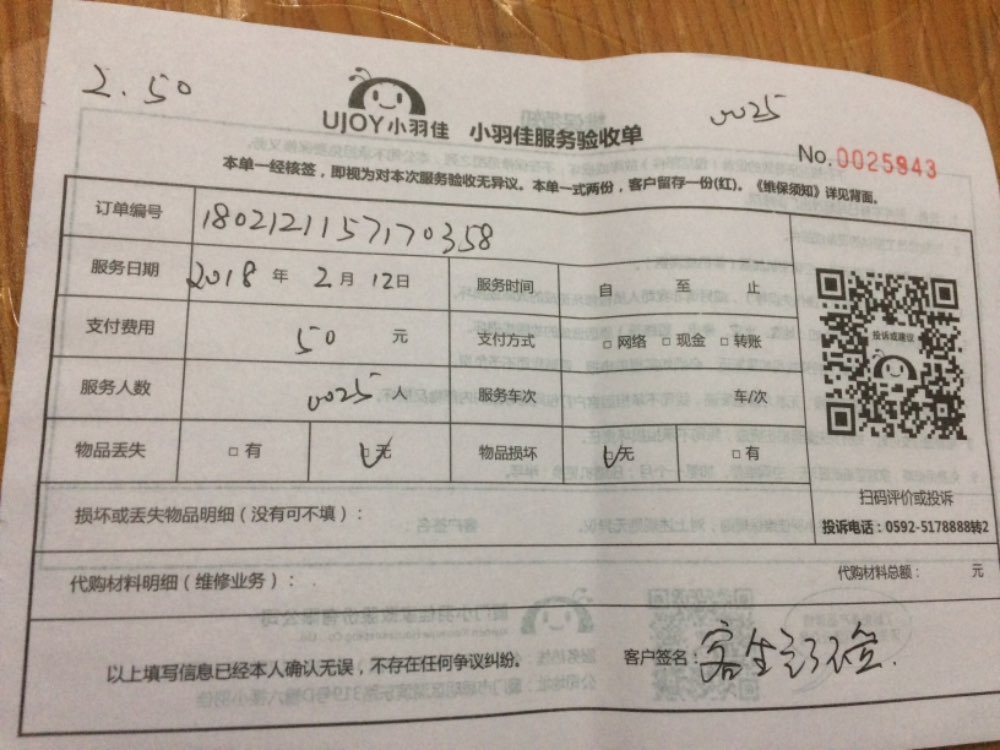 2.50
0025
UJOY小羽佳 小羽佳服务验收单
No.0025943
本单一经核签，即视为对本次服务验收无异议。本单一式两份，客户留存一份(红)。《维保须知》详见背面。
订单编号 1802121157170358
服务日期 2018 年 2 月 12 日 服务时间 自 至 止
支付费用 50 元 支付方式 □ 网络 □ 现金 □ 转账
服务人数 0025 人 服务车次 车/次
物品丢失 □ 有 □ 无 物品损坏 □ 无 □ 有
投诉或建议
扫码评价或投诉
投诉电话：0592-5178888转2
损坏或丢失物品明细（没有可不填）：
代购材料明细（维修业务）： 代购材料总额： 元
以上填写信息已经本人确认无误，不存在任何争议纠纷。 客户签名：